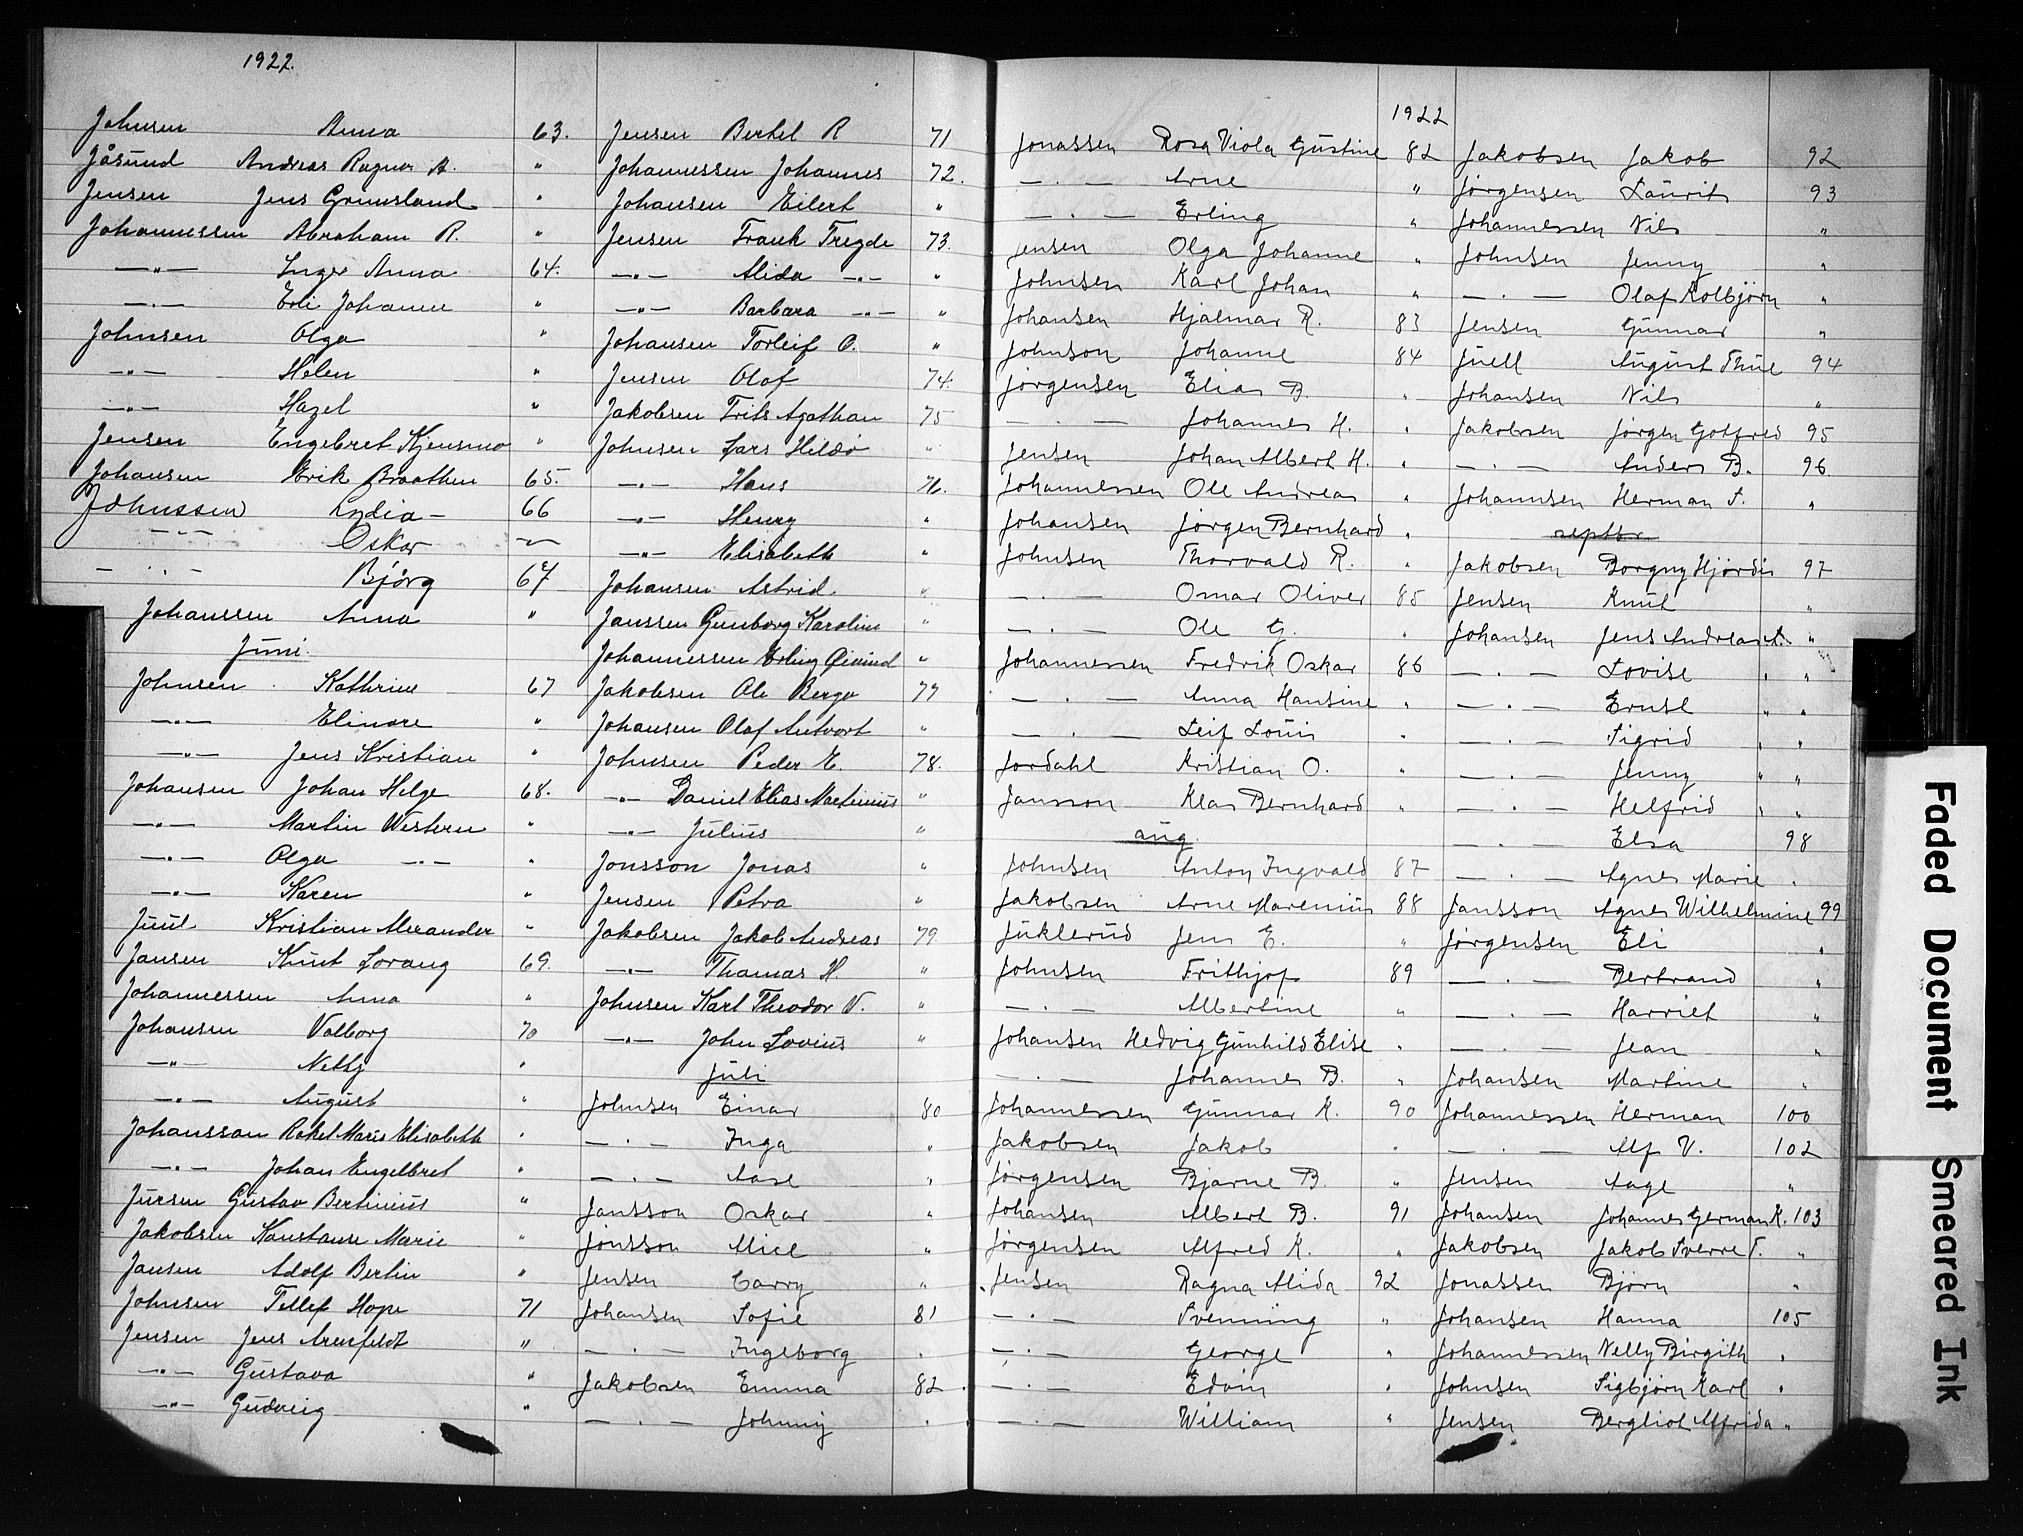 1922.
Johnsen Anna 63.
Jåsund Andreas Ragnv. A. "
Jensen Jens Grimsland "
Johannessen Abraham R. "
—"— Inger Anna 64.
—"— Erli Johanne "
Johnsen Olga "
—"— Helen "
—"— Hazel "
Jensen Engebret Kjensmo "
Johansen Erik Braathen 65.
Johnssen Lydia — 66
—"— Oskar —"—
— " — Bjørg 67
Johanssen Anna "
Juni.
Johnsen Kathrine 67
—"— Elinore "
—"— Jens Kristian "
Johansen Johan Helge 68.
—"— Martin Western "
—"— Olga —"— "
—"— Karen "
Juul Kristian Alexander "
Jansen Knut Lorang 69.
Johannessen Anna "
Johansen Valborg 70
—"— Nelly "
—"— August "
Johansson Rakel Maria Elisabeth "
—"— Johan Engelbret "
Jursen Gustav Bertinius "
Jakobsen Konstanse Marie "
Jansen Adolf Bertin "
Johnsen Tellef Hope 71
Jensen Jens Arenfeldt "
—"— Gustava "
—"— Gudveig "
Jensen Bertel R 71
Johannessen Johannes 72.
Johansen Eilert "
Jensen Frank Tregde 73.
—"— Alida —"— "
—"— Barbara —"— "
Johansen Torleif O. "
Jensen Olaf 74.
Jakobsen Frits Agathan 75
Johnsen Lars Hildø "
—"— Hans 76.
—"— Henry "
—"— Elisabeth "
Johansen Astrid "
Janssen Gunborg Karoline "
Johannessen Erling Øivind "
Jakobsen Ole Berge 77
Johansen Olaf Antvort "
Johnsen Peder E. 78.
—"— Daniel Elias Martinius "
—"— Julius "
Jonsson Jonas "
Jensen Petra "
Jakobsen Jakob Andreas 79.
—"— Thomas H. "
Johnsen Karl Theodor V. "
—"— John Lovius "
Juli
Johnsen Einar 80
— " — Inga "
— " — Aase "
Jansson Oskar "
Jönsson Alice "
Jensen Carry "
Johansen Sofie 81
— " — Ingeborg "
Jakobsen Emma 82
— " — Johnny "
1922
Jonassen Rosa Viola Gustine 82
— " — Arne "
— " — Erling "
Jensen Olga Johanne "
Johnsen Karl Johan "
Johansen Hjalmar R. 83
Johnson Johanne 84
Jørgensen Elias B. "
— " — Johannes H. "
Jensen Johan Albert H. "
Johannessen Ole Andreas "
Johansen Jørgen Bernhard "
Johnsen Thorvald R. "
— " — Omar Oliver 85
— " — Ole G. "
Johannessen Fredrik Oskar 86
— " — Anna Hansine "
— " — Leif Louis "
Jordahl Kristian O. "
Jansson Klas Bernhard "
aug.
Johnsen Anton Ingvald 87
Jakobsen Arne Marenius 88
Juklerud Jens E. "
Johnsen Frithjof 89
— " — Albertine "
Johansen Hedvig Gunhild Elise "
— " — Johannes B. "
Johannessen Gunnar K. 90
Jakobsen Jakob "
Jørgensen Bjarne B. "
Johansen Albert B. 91
Jørgensen Alfred K. "
Jensen Ragna Alida 92
— " — Svenning "
— " — George "
— " — Edvin "
— " — William "
Jakobsen Jakob 92
Jørgensen Laurits 93
Johannessen Nils "
Johnsen Jenny "
— " — Olaf Kolbjørn "
Jensen Gunnar "
Juell August Thue 94
Johansen Nils "
Jakobsen Jørgen Gotfred 95
— " — Anders B. 96
Johannsen Herman S. "
septbr.
Jakobsen Borgny Hjørdis 97
Jensen Knut "
Johansen Jens Andreas A. "
— " — Lovise "
— " — Ernst "
— " — Sigrid "
— " — Jenny "
— " — Helfrid "
— " — Elsa 98
— " — Agnes Marie "
Jansson Agnes Wilhelmine 99
Jørgensen Eli "
— " — Bertrand "
— " — Harriet "
— " — Jean "
Johansen Martine "
Johannessen Herman 100
— " — Alf V. 102
Jensen Aage "
Johansen Johannes German K. 103
Jakobsen Jakob Sverre T. "
Jonassen Bjørn "
Johansen Hanna 105
Johannessen Nelly Birgith "
Johnsen Sigbjørn Karl "
Jensen Bergliot Alfrida "
Faded Document
Smeared Ink